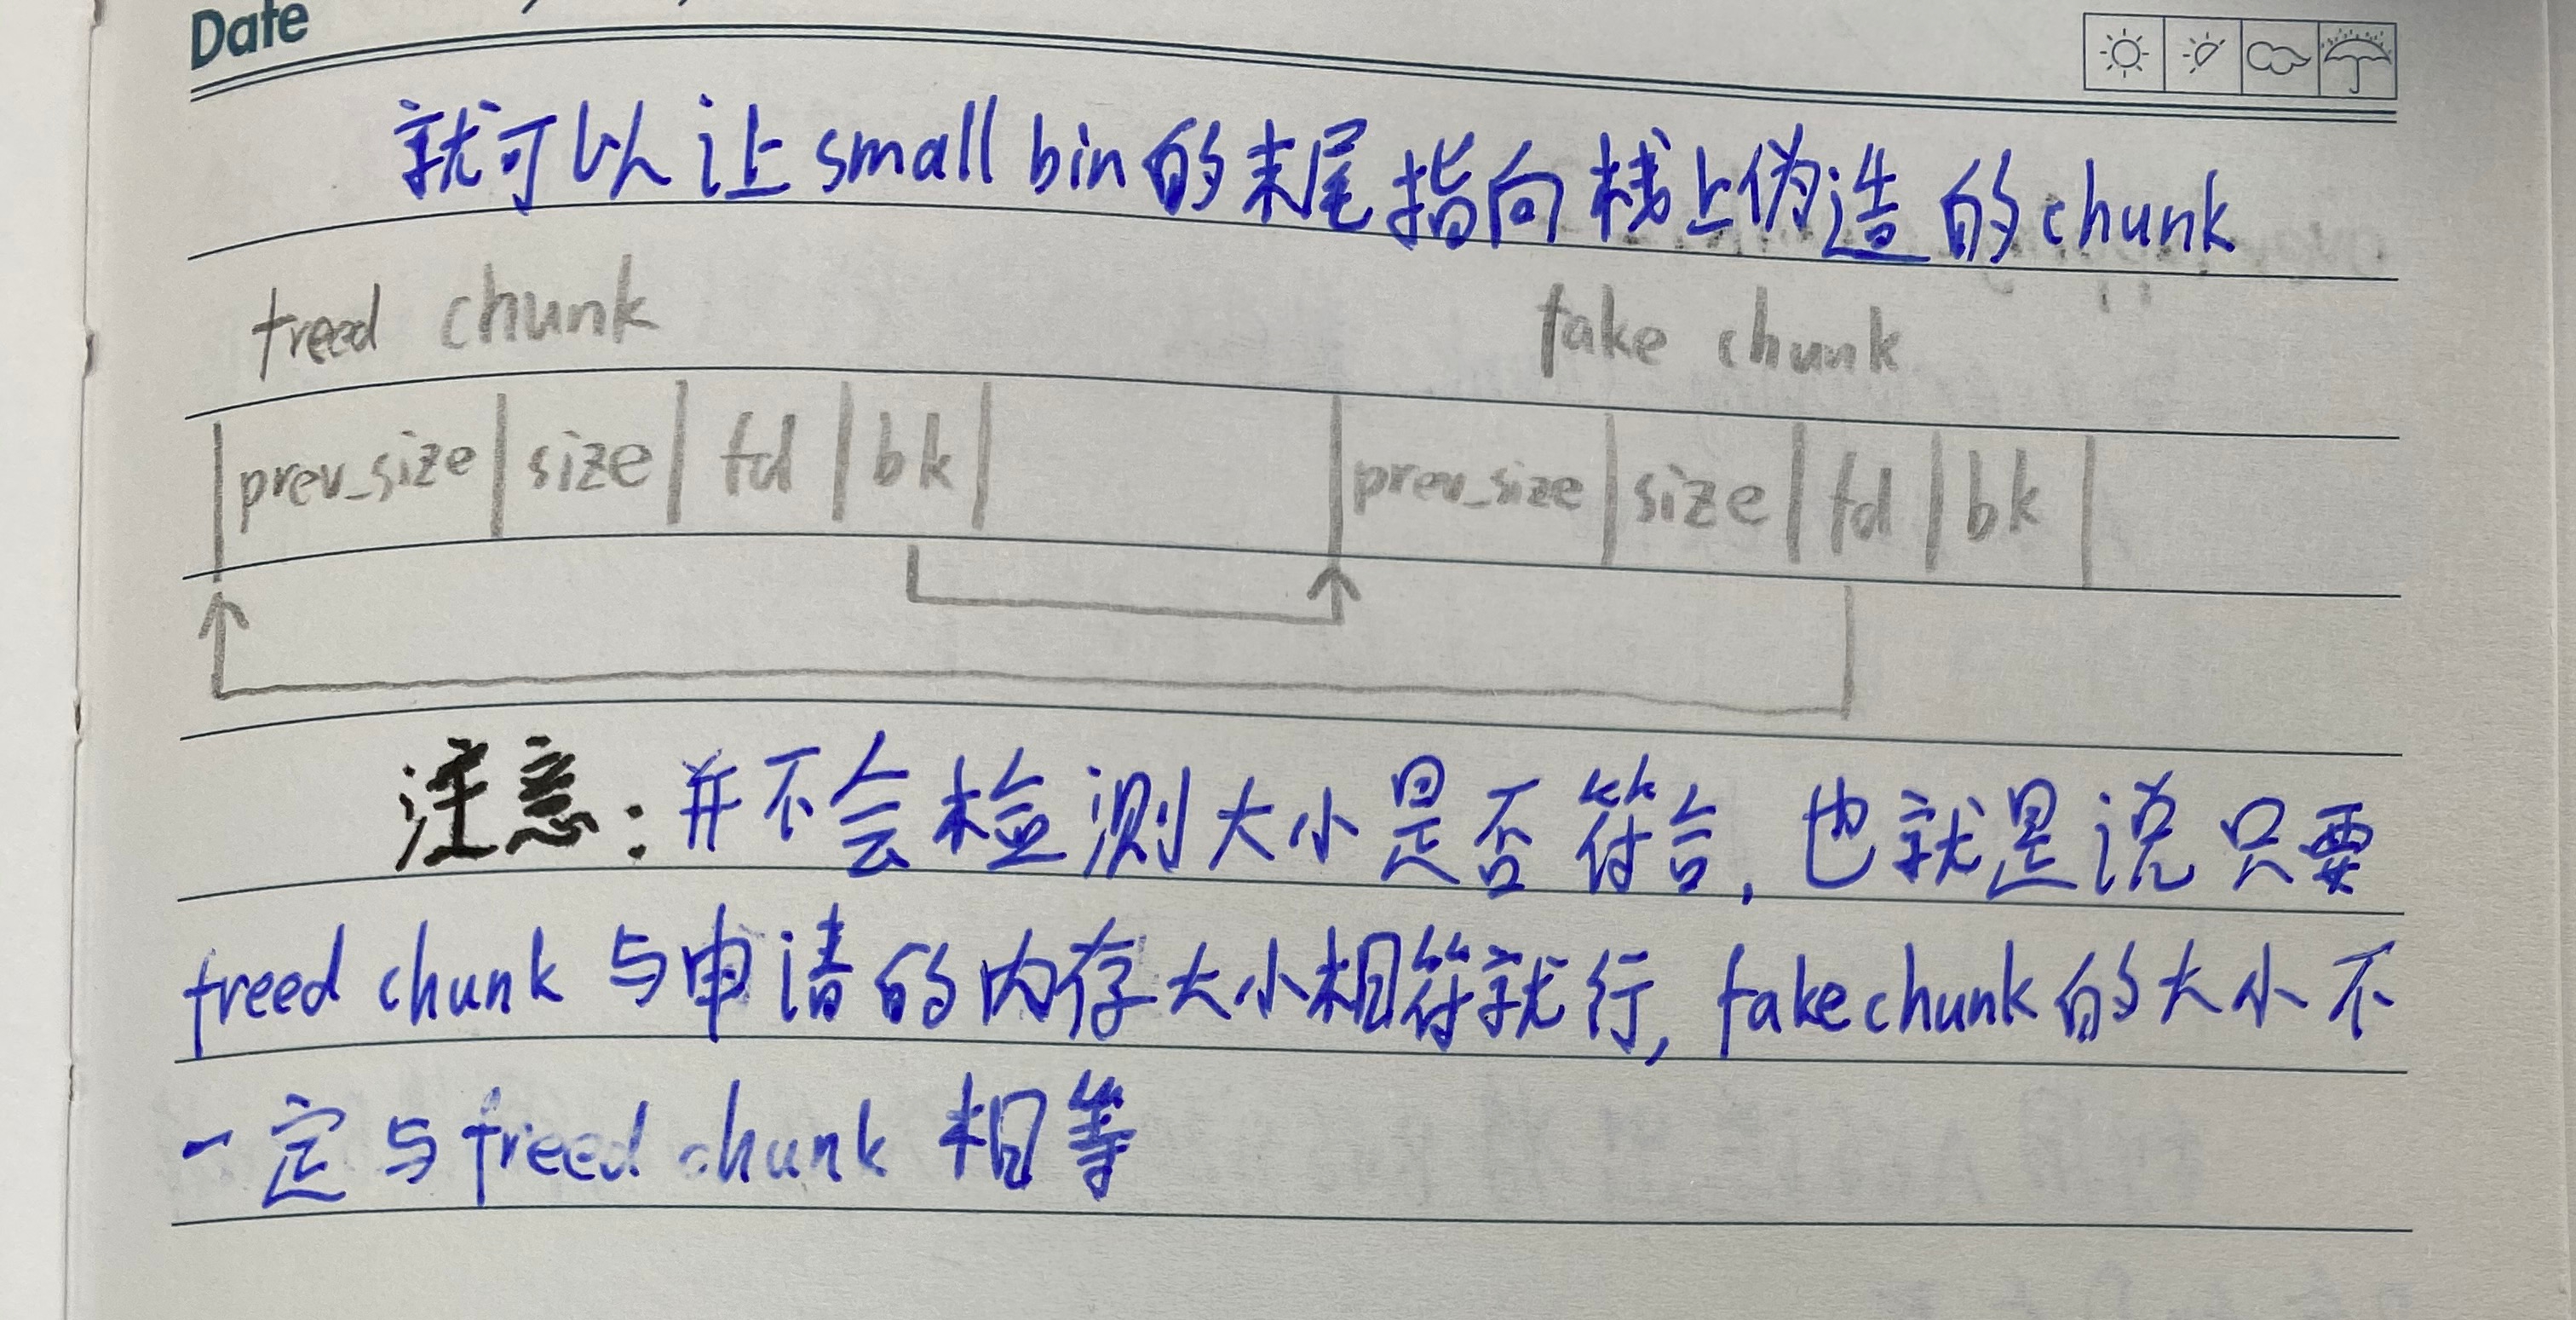 Date
就可以让small bin的末尾指向栈上伪造的chunk
freed chunk fake chunk
prev_size size fd bk prev_size size fd bk
注意：并不会检测大小是否符合，也就是说只要
freed chunk与申请的内存大小相符就行，fake chunk的大小不
一定与freed chunk相等